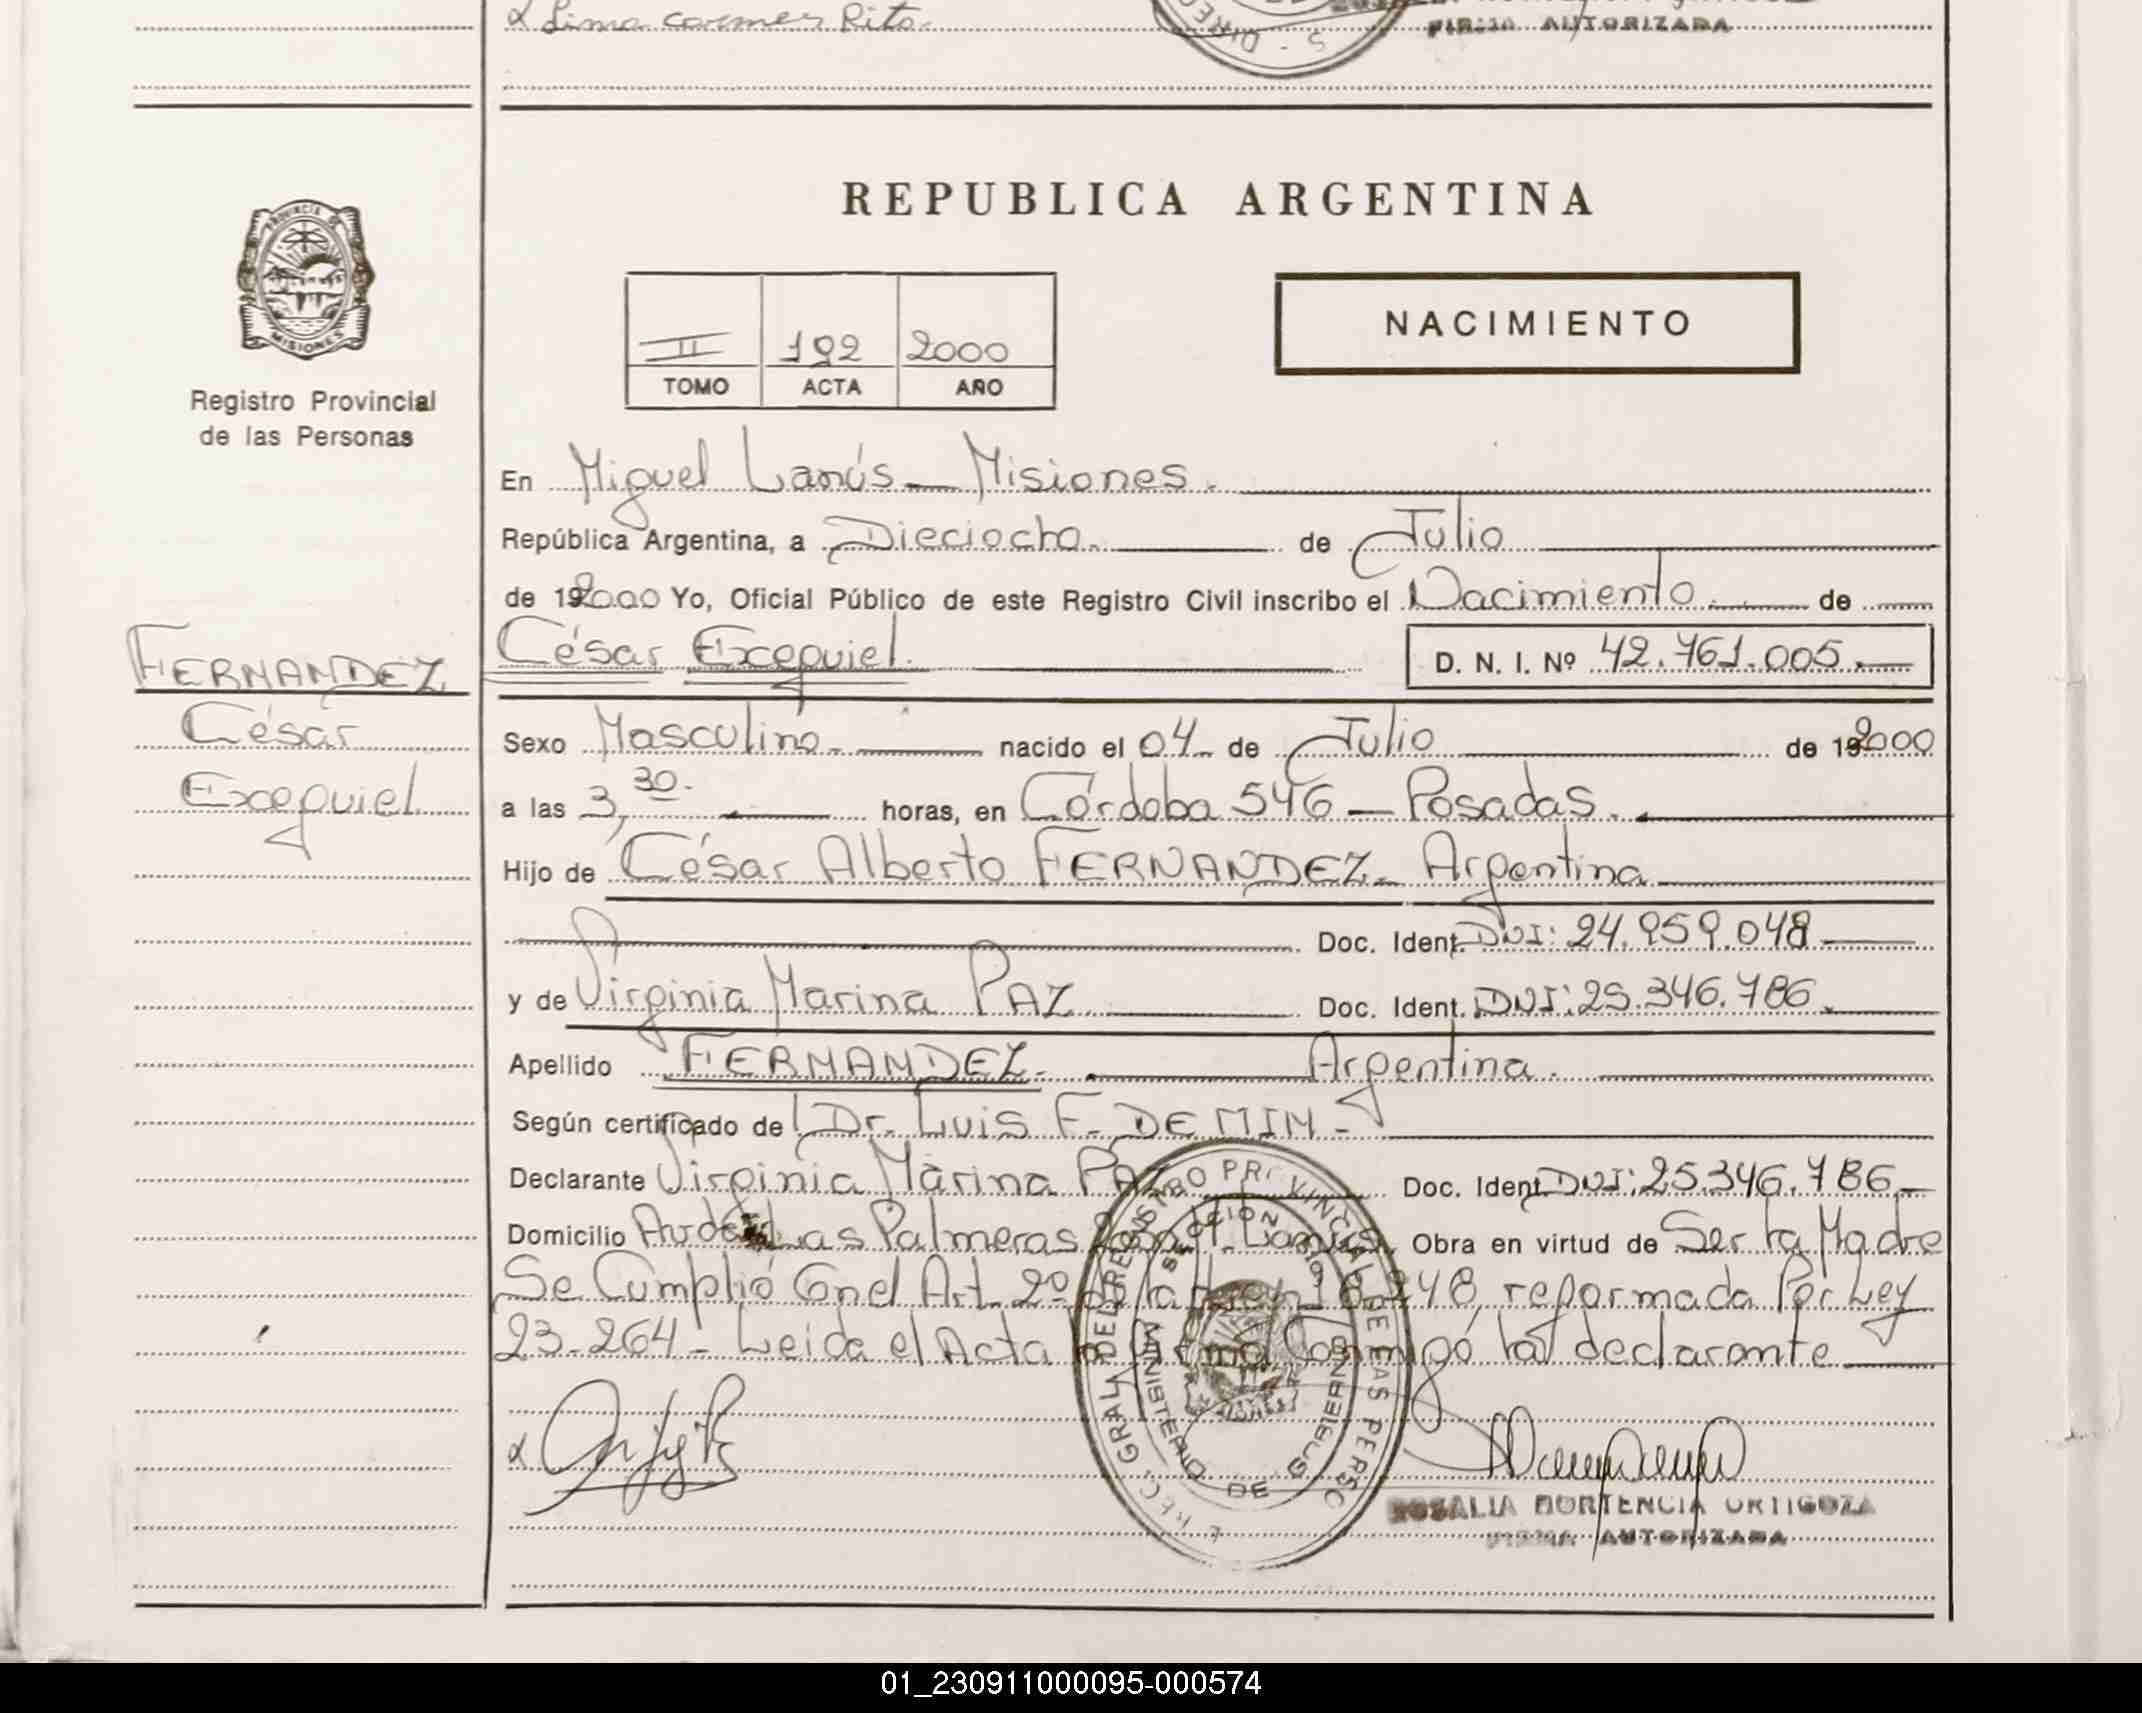 α Lima Carmen Rita.
FIRMA AUTORIZADA
REPUBLICA ARGENTINA
PROVINCIA DE
MISIONES
Registro Provincial
de las Personas
II 192 2000
TOMO ACTA AÑO
NACIMIENTO
En Miguel Lanús - Misiones.
República Argentina, a Dieciocho. de Julio
de 192000 Yo, Oficial Público de este Registro Civil inscribo el Nacimiento de
César Exequiel. D. N. I. Nº 42.761.005.
FERNANDEZ
César
Exequiel.
Sexo Masculino. nacido el 04 de Julio de 192000
a las 3,30. horas, en Córdoba 546 - Posadas.
Hijo de César Alberto FERNANDEZ - Argentina
Doc. Ident. DNI: 24.959.048
y de Virginia Marina PAZ Doc. Ident. DNI: 25.346.786.
Apellido FERNANDEZ. Argentina.
Según certificado de Dr. Luis F. DEMIN -
Declarante Virginia Marina PAZ Doc. Ident. DNI: 25.346.786
Domicilio Las Palmeras Lanús. Obra en virtud de Ser la Madre
Se Cumplió Con el Art. 2º de la Ley 18.248, reformada Por Ley
23.264 - Leida el Acta Firma Conmigo la declarante
ROSALIA HORTENCIA ORTIGOZA
FIRMA AUTORIZADA
DIREC. GRAL. DEL REGISTRO PROVINCIAL DE LAS PERSO
MINISTERIO DE GOBIERNO
01_230911000095-000574